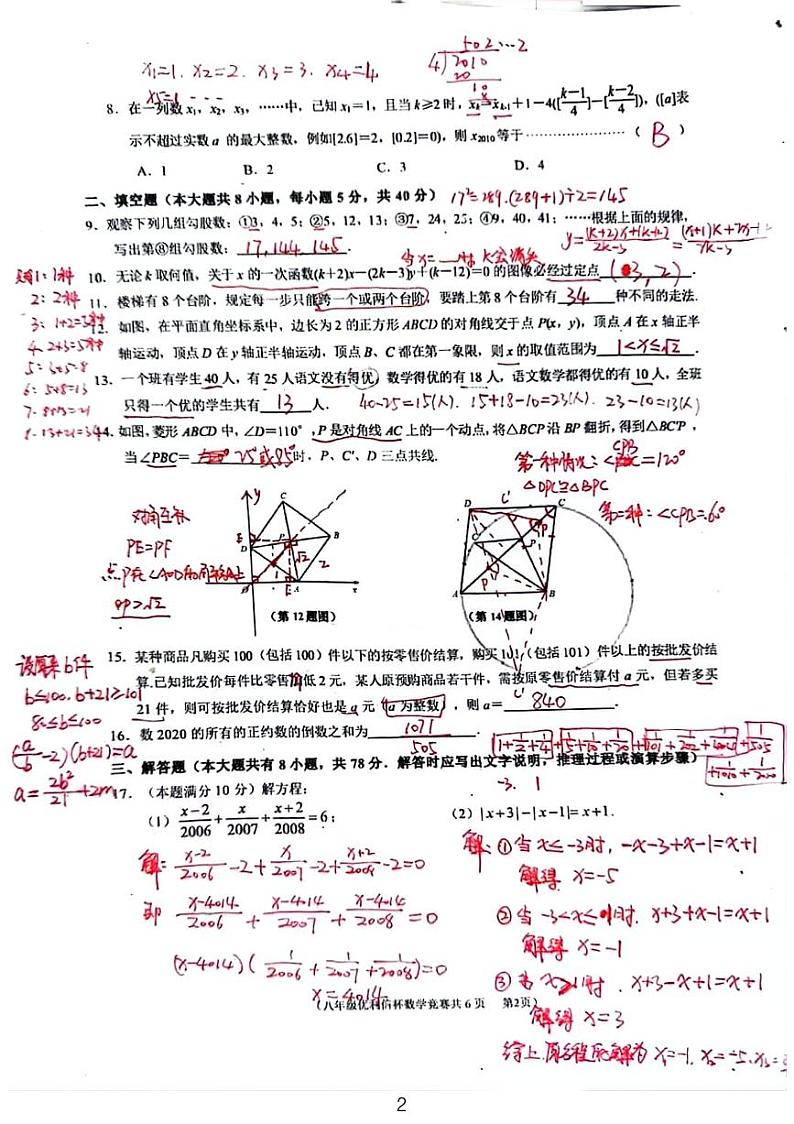 x₁=1. x₂=2. x₃=3. x₄=4
x5=1 ...
502...2
4 2010
20
10
8
8. 在一列数 x₁，x₂，x₃，……中，已知 x₁=1，且当 k≥2 时，xₖ=xₖ₋₁+1-4([(k-1)/4]-[(k-2)/4])，([a]表
示不超过实数 a 的最大整数，例如[2.6]=2，[0.2]=0)，则 x₂₀₁₀ 等于 ………………… （ B ）
A．1 B．2 C．3 D．4
二、填空题（本大题共 8 小题，每小题 5 分，共 40 分） 17²=289.(289+1)÷2=145
9．观察下列几组勾股数：①3，4，5；②5，12，13；③7，24，25；④9，40，41；……根据上面的规律，
写出第⑧组勾股数： 17,144,145 ．
10．无论 k 取何值，关于 x 的一次函数(k+2)x—(2k—3)y+(k—12)=0 的图像必经过定点 (3, 2) ．
11．楼梯有 8 个台阶，规定每一步只能跨一个或两个台阶，要踏上第 8 个台阶有 34 种不同的走法.
1：1种
2：2种
3：1+2=3种
4. 2+3=5种
5：3+5=8
6：5+8=13
7. 8+13=21
8. 13+21=34
12．如图，在平面直角坐标系中，边长为 2 的正方形 ABCD 的对角线交于点 P(x，y)，顶点 A 在 x 轴正半
轴运动，顶点 D 在 y 轴正半轴运动，顶点 B、C 都在第一象限，则 x 的取值范围为 1<x≤√2 ．
13．一个班有学生 40 人，有 25 人语文没有得优，数学得优的有 18 人，语文数学都得优的有 10 人，全班
只得一个优的学生共有 13 人． 40-25=15(人). 15+18-10=23(人). 23-10=13(人)
14．如图，菱形 ABCD 中，∠D=110°，P 是对角线 AC 上的一个动点，将△BCP 沿 BP 翻折，得到△BC′P，
当∠PBC= 25°或85° 时，P、C′、D 三点共线.
第一种情况：∠CPB=120°
△DPC≌△BPC
第二种：∠CPB=60°
对角互补
PE=PF
OP>√2
y C E D P B √2 2 O F A x
（第 12 题图）
D C′ C P A B
（第 14 题图）
C′
15．某种商品凡购买 100（包括 100）件以下的按零售价结算，购买 101（包括 101）件以上的按批发价结
算.已知批发价每件比零售价低 2 元，某人原预购商品若干件，需按原零售价结算付 a 元，但若多买
21 件，则可按批发价结算恰好也是 a 元（a 为整数），则 a= 840 ．
b≤100. b+21≥101
80≤b≤100
(a/b-2)(b+21)=a
a=2b²/21+2b
16．数 2020 的所有的正约数的倒数之和为 1071/505 ．
1+1/2+1/4+1/5+1/10+1/20+1/101+1/202+1/404+1/505
+1/1010+1/2020
三、解答题（本大题共有 8 小题，共 78 分．解答时应写出文字说明，推理过程或演算步骤）
-3. 1
17．（本题满分 10 分）解方程：
（1）(x-2)/2006+x/2007+(x+2)/2008=6；
（2）|x+3|-|x-1|=x+1.
解：(x-2)/2006-2+x/2007-2+(x+2)/2008-2=0
即 (x-4014)/2006+(x-4014)/2007+(x-4014)/2008=0
(x-4014)(1/2006+1/2007+1/2008)=0
x=4014
解：①当x≤-3时，-x-3+x-1=x+1
解得 x=-5
②当-3<x≤1时. x+3+x-1=x+1
解得 x=-1
③当x>1时. x+3-x+1=x+1
解得 x=3
综上.原方程的解为 x₁=-1, x₂=-5, x₃=3
（八年级优利信杯数学竞赛共 6 页 第 2 页）
2